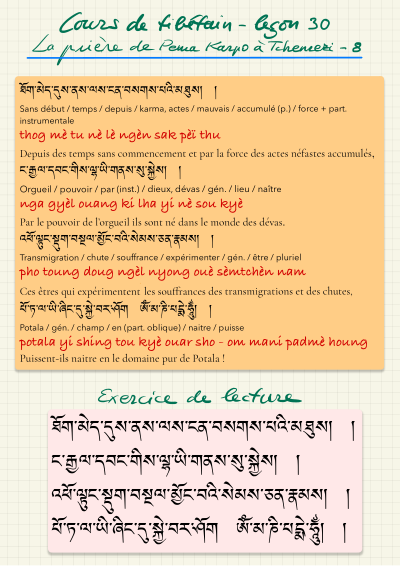 Cours de tibétain - leçon 30
La prière de Pema Karpo à Tchenrezi - 8
ཐོག་མེད་དུས་ནས་ལས་ངན་བསགས་པའི་མཐུས། །
Sans début / temps / depuis / karma, actes / mauvais / accumulé (p.) / force + part.
instrumentale
thog mè tu nè lè ngèn sak pèï thu
Depuis des temps sans commencement et par la force des actes néfastes accumulés,
ང་རྒྱལ་དབང་གིས་ལྷ་ཡི་གནས་སུ་སྐྱེས། །
Orgueil / pouvoir / par (inst.) / dieux, dévas / gén. / lieu / naître
nga gyèl ouang ki lha yi nè sou kyè
Par le pouvoir de l'orgueil ils sont né dans le monde des dévas.
འཕོ་ལྟུང་སྡུག་བསྔལ་མྱོང་བའི་སེམས་ཅན་རྣམས། །
Transmigration / chute / souffrance / expérimenter / gén. / être / pluriel
pho toung doug ngèl nyong ouè sèmtchèn nam
Ces êtres qui expérimentent les souffrances des transmigrations et des chutes,
པོ་ཏ་ལ་ཡི་ཞིང་དུ་སྐྱེ་བར་ཤོག ཨོཾ་མ་ཎི་པདྨེ་ཧཱུྃ། །
Potala / gén. / champ / en (part. oblique) / naitre / puisse
potala yi shing tou kyè ouar sho - om mani padmè houng
Puissent-ils naitre en le domaine pur de Potala !
Exercice de lecture
ཐོག་མེད་དུས་ནས་ལས་ངན་བསགས་པའི་མཐུས། །
ང་རྒྱལ་དབང་གིས་ལྷ་ཡི་གནས་སུ་སྐྱེས། །
འཕོ་ལྟུང་སྡུག་བསྔལ་མྱོང་བའི་སེམས་ཅན་རྣམས། །
པོ་ཏ་ལ་ཡི་ཞིང་དུ་སྐྱེ་བར་ཤོག ཨོཾ་མ་ཎི་པདྨེ་ཧཱུྃ། །